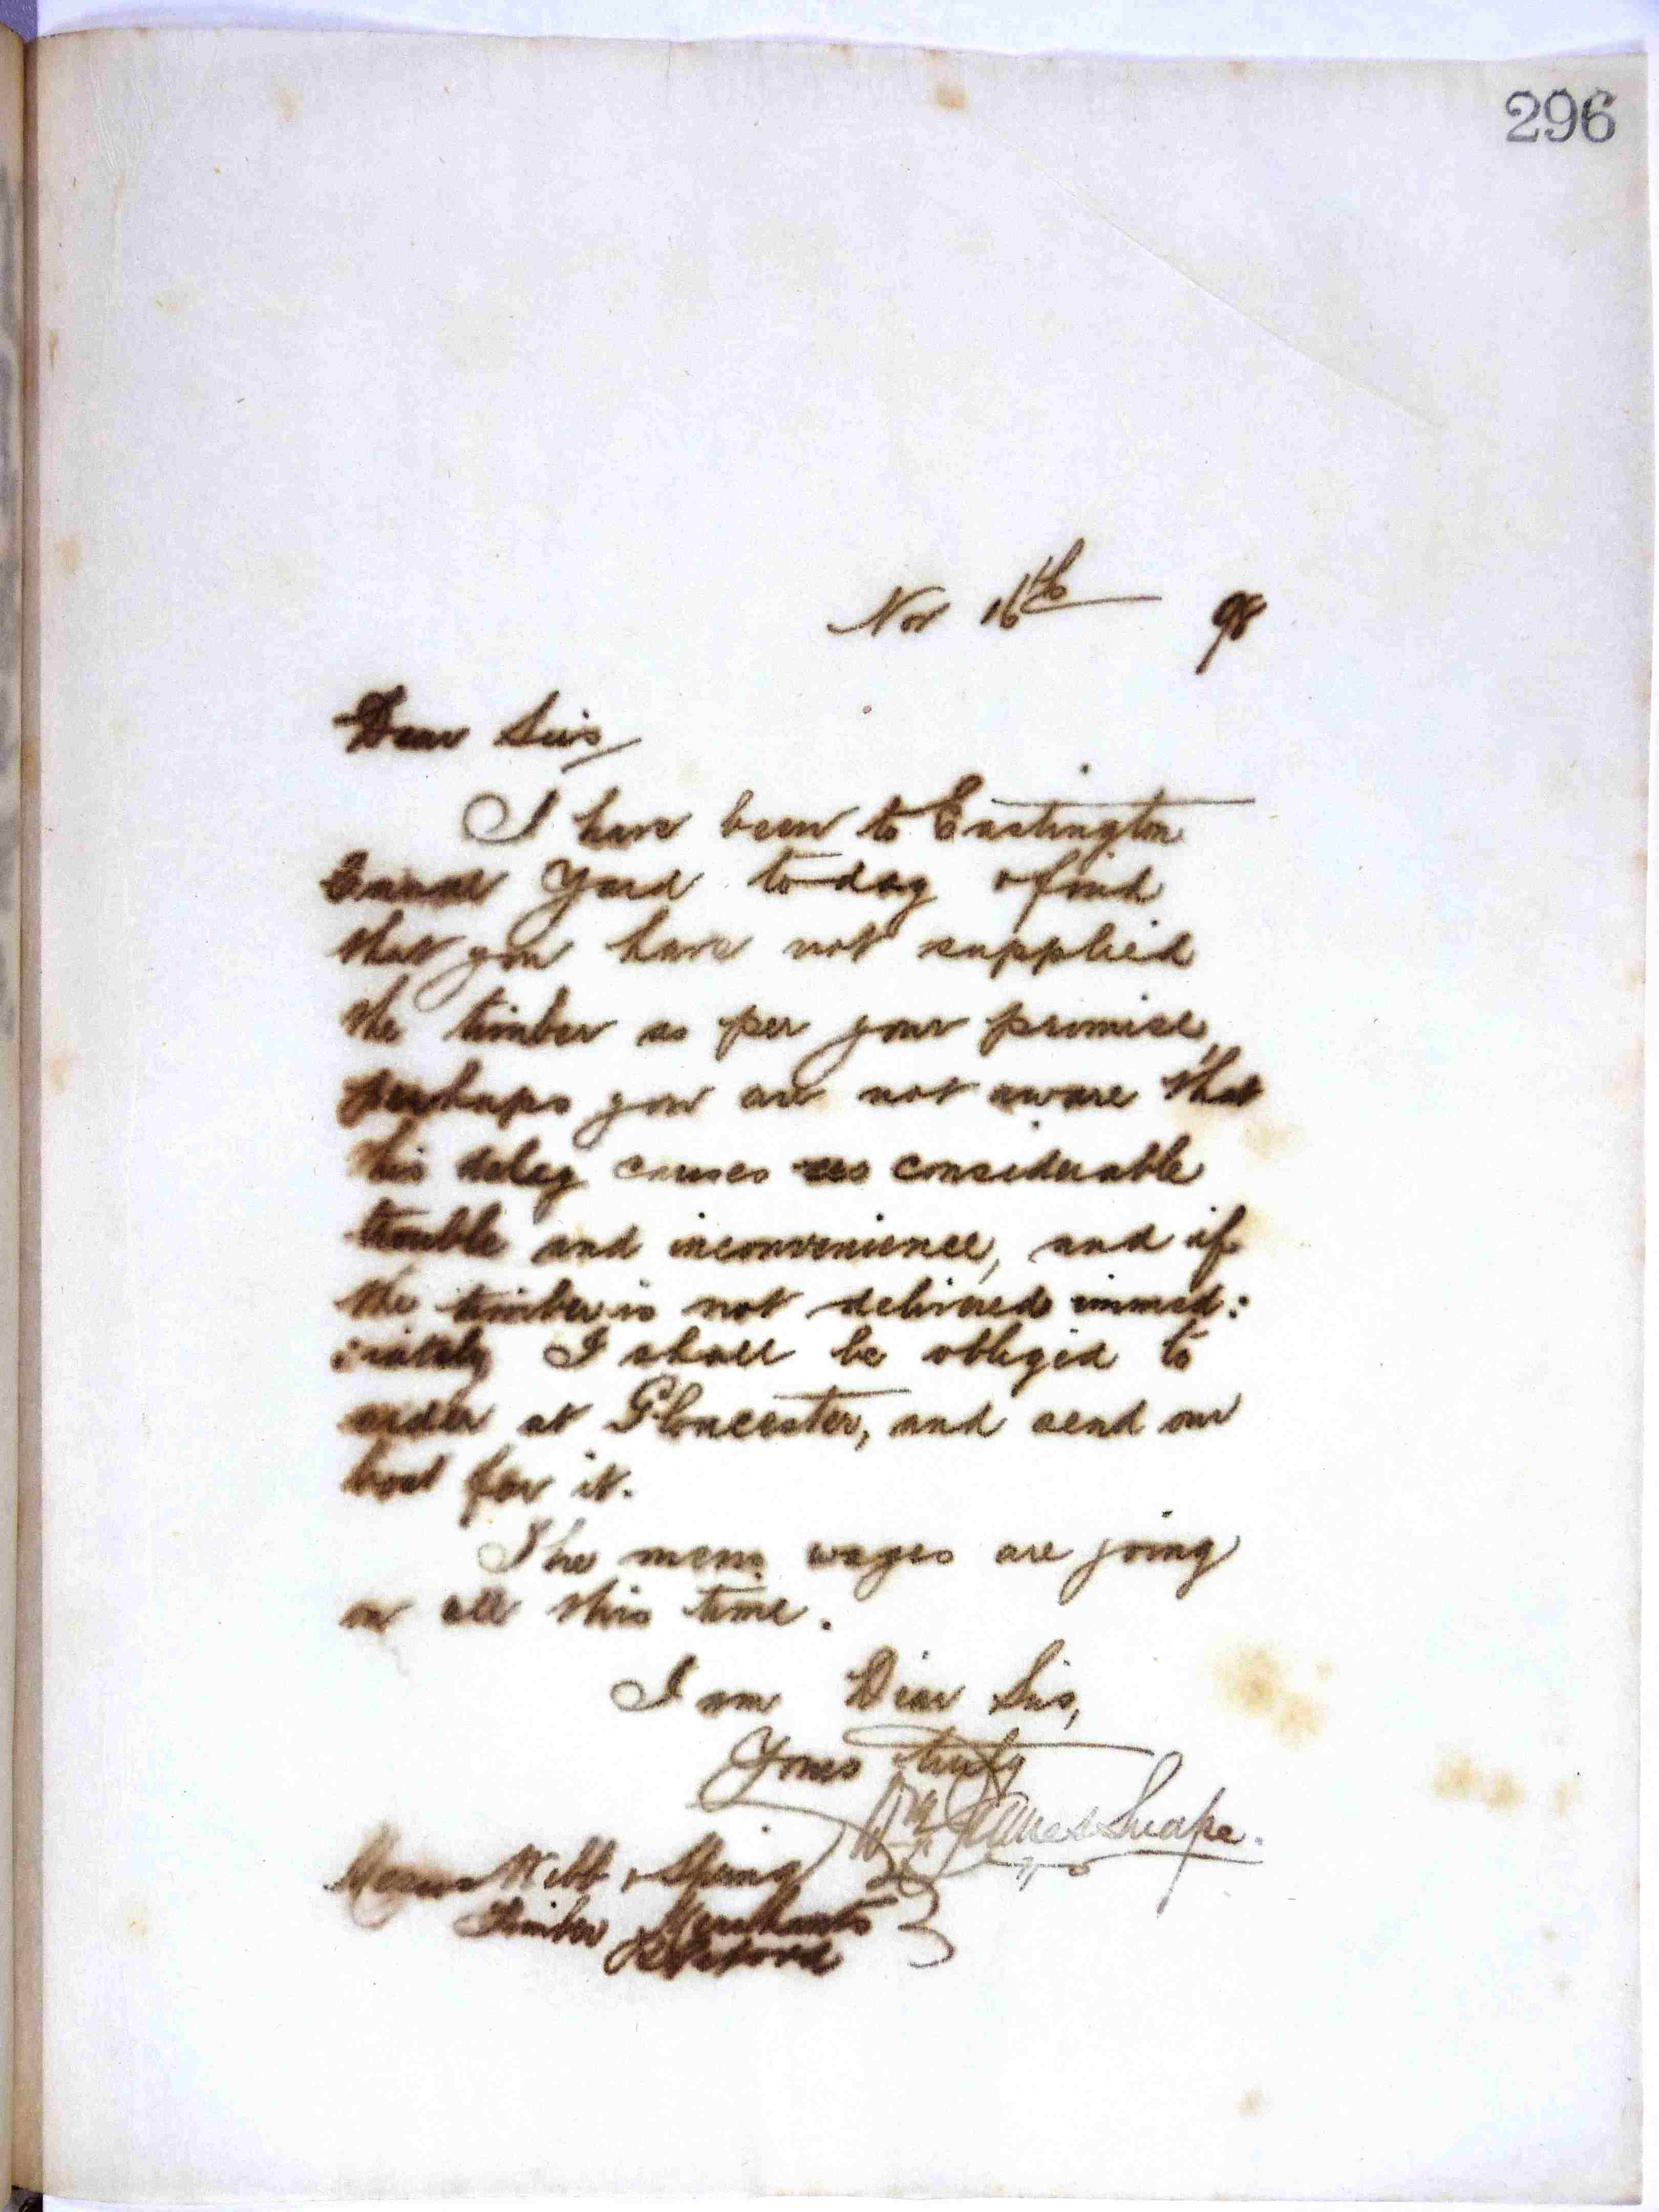 296
Nov 16th 98
Dear Sirs,
I have been to Eastington
Canal Yard to-day & find
that you have not supplied
the timber as per your promise,
perhaps you are not aware that
this delay causes us considerable
trouble and inconvenience, and if
the timber is not delivered immed:
:iately I shall be obliged to
order at Gloucester, and send our
boat for it.
The mens wages are going
on all this time.
I am Dear Sirs,
Yours truly
Snape.
Messrs Webb & Spring
Timber Merchants